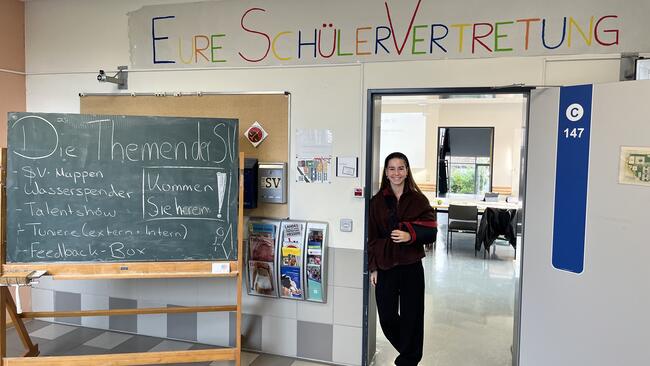 Eure SchülerVertretung
Die Themen der SV
- SV-Mappen
- Wasserspender
- Talentshow
- Tuniere (extern + intern)
- Feedback-Box
Kommen
Sie herein!
SV
C
147